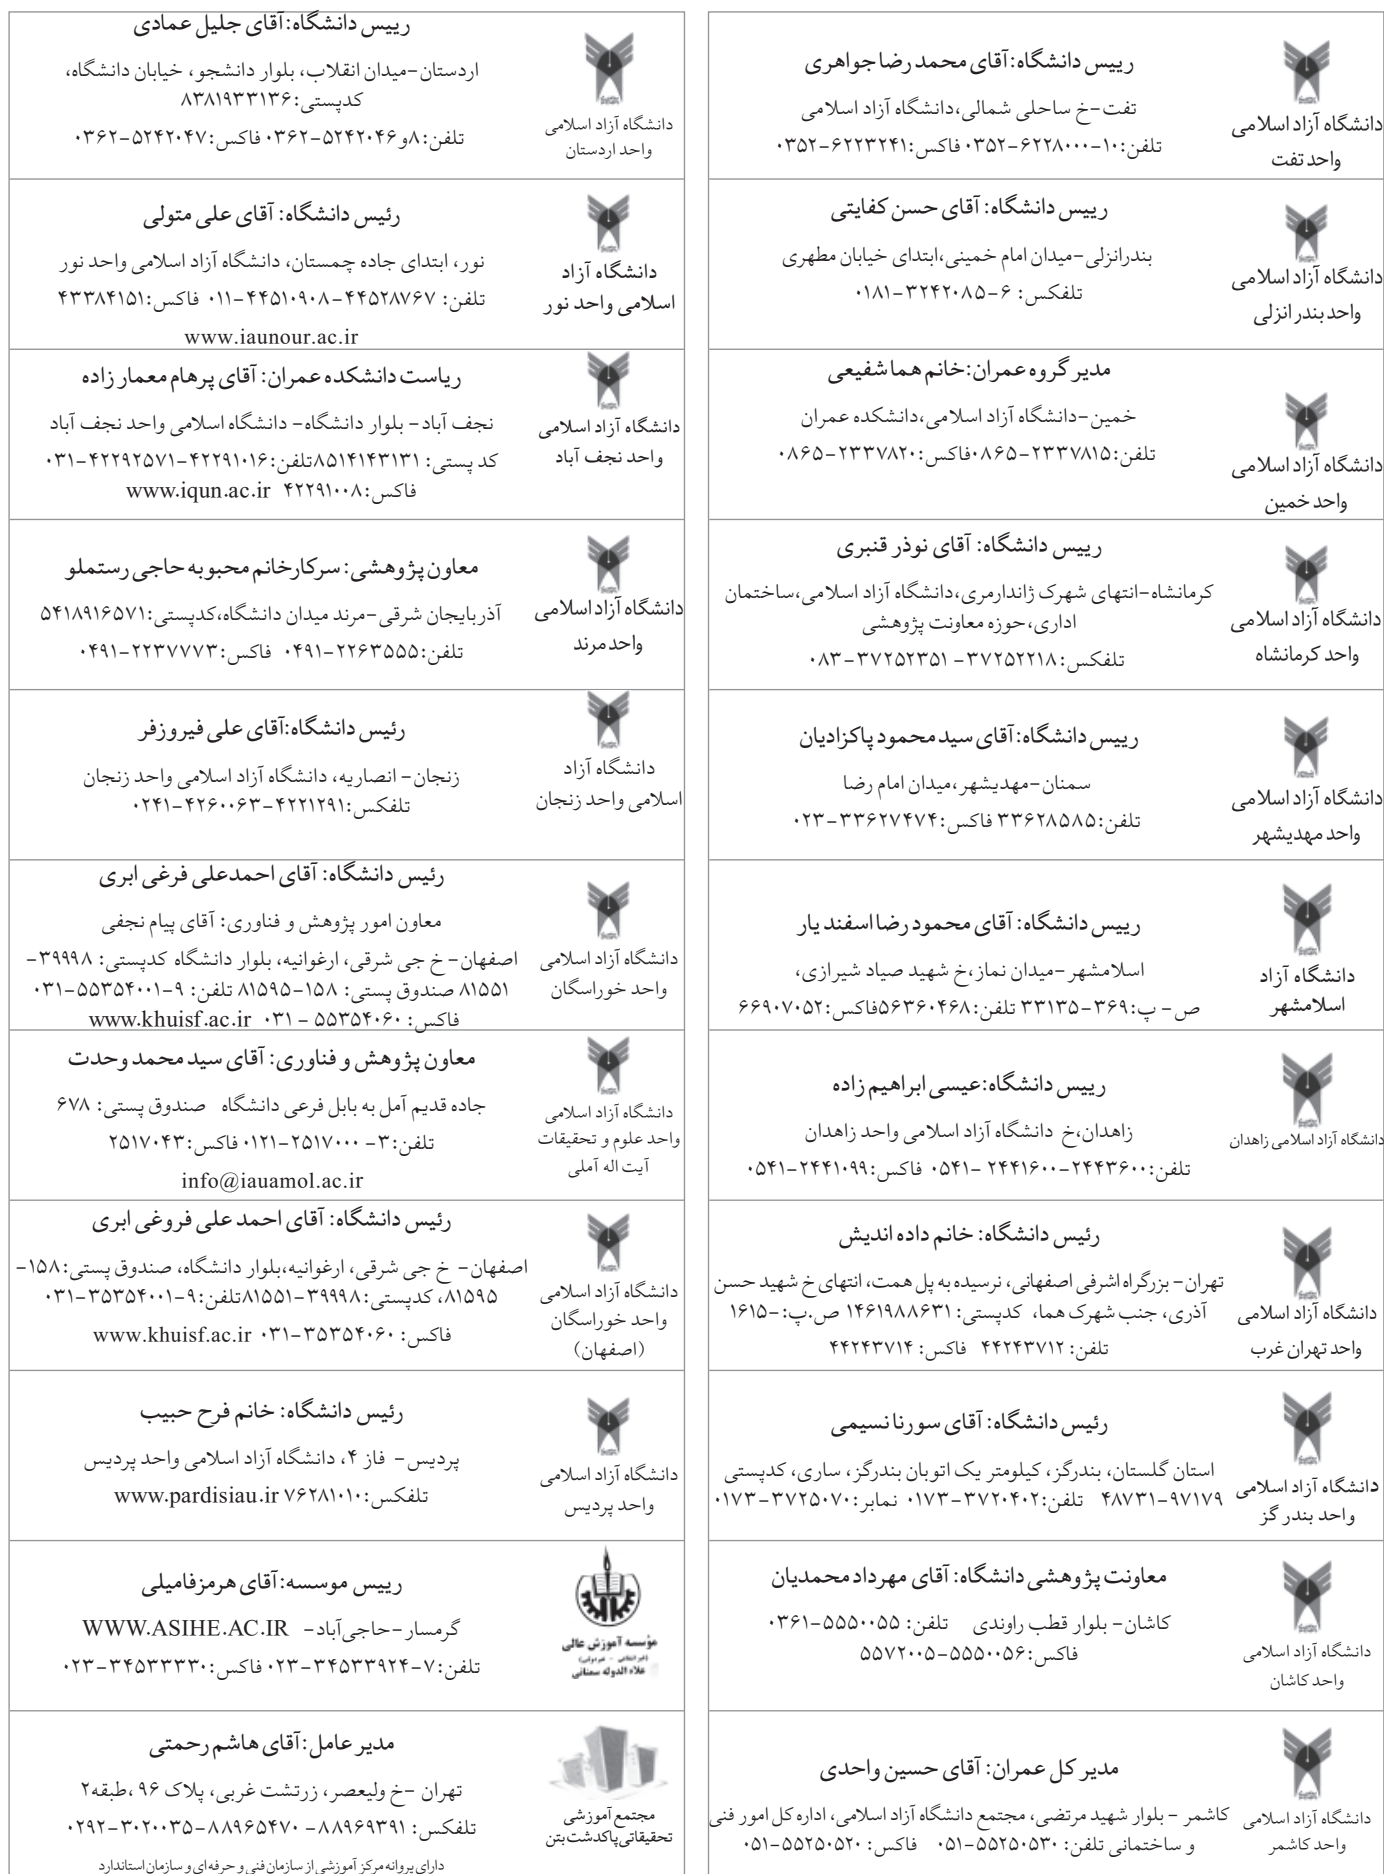 رییس دانشگاه:آقای محمد رضا جواهری
تفت-خ ساحلی شمالی،دانشگاه آزاد اسلامی
تلفن:۱۰-۰۳۵۲-۶۲۲۸۰۰۰ فاکس:۰۳۵۲-۶۲۲۳۲۴۱
دانشگاه آزاد اسلامی
واحد تفت
رییس دانشگاه: آقای حسن کفایتی
بندرانزلی-میدان امام خمینی،ابتدای خیابان مطهری
تلفکس: ۶-۰۱۸۱-۳۲۴۲۰۸۵
دانشگاه آزاد اسلامی
واحد بندر انزلی
مدیر گروه عمران:خانم هما شفیعی
خمین-دانشگاه آزاد اسلامی،دانشکده عمران
تلفن:۰۸۶۵-۲۳۳۷۸۱۵فاکس:۰۸۶۵-۲۳۳۷۸۲۰
دانشگاه آزاد اسلامی
واحد خمین
رییس دانشگاه: آقای نوذر قنبری
کرمانشاه-انتهای شهرک ژاندارمری،دانشگاه آزاد اسلامی،ساختمان
اداری،حوزه معاونت پژوهشی
تلفکس:۳۷۲۵۲۲۱۸ -۰۸۳-۳۷۲۵۲۳۵۱
دانشگاه آزاد اسلامی
واحد کرمانشاه
رییس دانشگاه: آقای سید محمود پاکزادیان
سمنان-مهدیشهر،میدان امام رضا
تلفن:۳۳۶۲۸۵۸۵ فاکس:۰۲۳-۳۳۶۲۷۴۷۴
دانشگاه آزاد اسلامی
واحد مهدیشهر
رییس دانشگاه: آقای محمود رضا اسفند یار
اسلامشهر-میدان نماز،خ شهید صیاد شیرازی،
ص- پ:۳۶۹-۳۳۱۳۵ تلفن:۵۶۳۶۰۴۶۸فاکس:۶۶۹۰۷۰۵۲
دانشگاه آزاد
اسلامشهر
رییس دانشگاه:عیسی ابراهیم زاده
زاهدان،خ دانشگاه آزاد اسلامی واحد زاهدان
تلفن:۲۴۴۳۶۰۰-۲۴۴۱۶۰۰ -۰۵۴۱ فاکس:۰۵۴۱-۲۴۴۱۰۹۹
دانشگاه آزاد اسلامی زاهدان
رئیس دانشگاه: خانم داده اندیش
تهران- بزرگراه اشرفی اصفهانی، نرسیده به پل همت، انتهای خ شهید حسن
آذری، جنب شهرک هما، کدپستی: ۱۴۶۱۹۸۸۶۳۱ ص.پ:-۱۶۱۵
تلفن: ۴۴۲۴۳۷۱۲ فاکس: ۴۴۲۴۳۷۱۴
دانشگاه آزاد اسلامی
واحد تهران غرب
رئیس دانشگاه: آقای سورنا نسیمی
استان گلستان، بندرگز، کیلومتر یک اتوبان بندرگز، ساری، کدپستی
۴۸۷۳۱-۹۷۱۷۹ تلفن:۰۱۷۳-۳۷۲۰۴۰۲ نمابر:۰۱۷۳-۳۷۲۵۰۷۰
دانشگاه آزاد اسلامی
واحد بندر گز
معاونت پژوهشی دانشگاه: آقای مهرداد محمدیان
کاشان- بلوار قطب راوندی تلفن: ۰۳۶۱-۵۵۵۰۰۵۵
فاکس:۵۵۷۲۰۰۵-۵۵۵۰۰۵۶
دانشگاه آزاد اسلامی
واحد کاشان
مدیر کل عمران: آقای حسین واحدی
کاشمر - بلوار شهید مرتضی، مجتمع دانشگاه آزاد اسلامی، اداره کل امور فنی
و ساختمانی تلفن: ۰۵۱-۵۵۲۵۰۵۳۰ فاکس: ۰۵۱-۵۵۲۵۰۵۲۰
دانشگاه آزاد اسلامی
واحد کاشمر
رییس دانشگاه:آقای جلیل عمادی
اردستان-میدان انقلاب، بلوار دانشجو، خیابان دانشگاه،
کدپستی:۸۳۸۱۹۳۳۱۳۶
تلفن:۸و۰۳۶۲-۵۲۴۲۰۴۶ فاکس:۰۳۶۲-۵۲۴۲۰۴۷
دانشگاه آزاد اسلامی
واحد اردستان
رئیس دانشگاه: آقای علی متولی
نور، ابتدای جاده چمستان، دانشگاه آزاد اسلامی واحد نور
تلفن: ۴۴۵۲۸۷۶۷-۰۱۱-۴۴۵۱۰۹۰۸ فاکس:۴۳۳۸۴۱۵۱
www.iaunour.ac.ir
دانشگاه آزاد
اسلامی واحد نور
ریاست دانشکده عمران: آقای پرهام معمار زاده
نجف آباد- بلوار دانشگاه- دانشگاه اسلامی واحد نجف آباد
کد پستی: ۸۵۱۴۱۴۳۱۳۱تلفن:۴۲۲۹۱۰۱۶-۰۳۱-۴۲۲۹۲۵۷۱
فاکس:۴۲۲۹۱۰۰۸ www.iqun.ac.ir
دانشگاه آزاد اسلامی
واحد نجف آباد
معاون پژوهشی: سرکارخانم محبوبه حاجی رستملو
آذربایجان شرقی-مرند میدان دانشگاه،کدپستی:۵۴۱۸۹۱۶۵۷۱
تلفن:۰۴۹۱-۲۲۶۳۵۵۵ فاکس:۰۴۹۱-۲۲۳۷۷۷۳
دانشگاه آزاد اسلامی
واحد مرند
رئیس دانشگاه:آقای علی فیروزفر
زنجان- انصاریه، دانشگاه آزاد اسلامی واحد زنجان
تلفکس:۴۲۲۱۲۹۱-۰۲۴۱-۴۲۶۰۰۶۳
دانشگاه آزاد
اسلامی واحد زنجان
رئیس دانشگاه: آقای احمدعلی فرغی ابری
معاون امور پژوهش و فناوری: آقای پیام نجفی
اصفهان- خ جی شرقی، ارغوانیه، بلوار دانشگاه کدپستی: ۳۹۹۹۸-
۸۱۵۵۱ صندوق پستی: ۱۵۸-۸۱۵۹۵ تلفن: ۹-۰۳۱-۵۵۳۵۴۰۰۱
فاکس: ۵۵۳۵۴۰۶۰ - ۰۳۱ www.khuisf.ac.ir
دانشگاه آزاد اسلامی
واحد خوراسگان
معاون پژوهش و فناوری: آقای سید محمد وحدت
جاده قدیم آمل به بابل فرعی دانشگاه صندوق پستی: ۶۷۸
تلفن:۳- ۰۱۲۱-۲۵۱۷۰۰۰ فاکس:۲۵۱۷۰۴۳
info@iauamol.ac.ir
دانشگاه آزاد اسلامی
واحد علوم و تحقیقات
آیت اله آملی
رئیس دانشگاه: آقای احمد علی فروغی ابری
اصفهان- خ جی شرقی، ارغوانیه،بلوار دانشگاه، صندوق پستی:۱۵۸-
۸۱۵۹۵، کدپستی:۳۹۹۹۸-۸۱۵۵۱تلفن:۹-۰۳۱-۳۵۳۵۴۰۰۱
فاکس: ۰۳۱-۳۵۳۵۴۰۶۰ www.khuisf.ac.ir
دانشگاه آزاد اسلامی
واحد خوراسگان
(اصفهان)
رئیس دانشگاه: خانم فرح حبیب
پردیس- فاز ۴، دانشگاه آزاد اسلامی واحد پردیس
تلفکس:۷۶۲۸۱۰۱۰ www.pardisiau.ir
دانشگاه آزاد اسلامی
واحد پردیس
رییس موسسه:آقای هرمزفامیلی
گرمسار-حاجی‌آباد- WWW.ASIHE.AC.IR
تلفن:۷-۰۲۳-۳۴۵۳۳۹۲۴ فاکس:۰۲۳-۳۴۵۳۳۳۳۰
مؤسسه آموزش عالی
(غیرانتفاعی - غیردولتی)
علاء الدوله سمنانی
مدیر عامل:آقای هاشم رحمتی
تهران -خ ولیعصر، زرتشت غربی، پلاک ۹۶ ،طبقه۲
تلفکس: ۸۸۹۶۹۳۹۱ -۸۸۹۶۵۴۷۰-۰۲۹۲-۳۰۲۰۰۳۵
دارای پروانه مرکز آموزشی از سازمان فنی و حرفه ای و سازمان استاندارد
مجتمع آموزشی
تحقیقاتی پاکدشت بتن